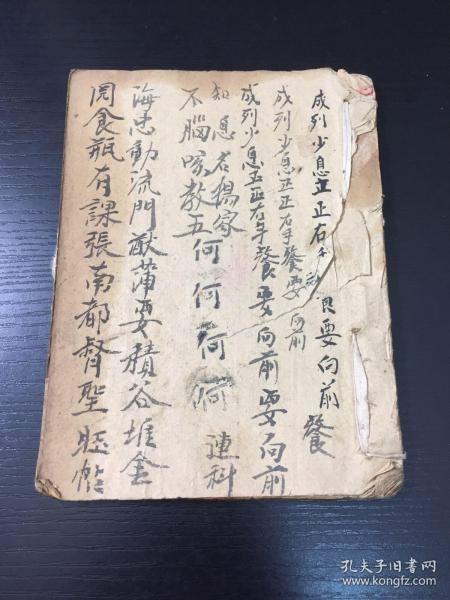 成列少息立正右手 食要向前餐
成列少息立正右手餐要向前
成列少息立正右手餐要向前要向前
知息名揚家
不腦喀教五何何何何連科
海忠動流門猷蒲要積谷堆金
罔食瓶有課張南都督聖賍帖
孔夫子旧书网
www.kongfz.com